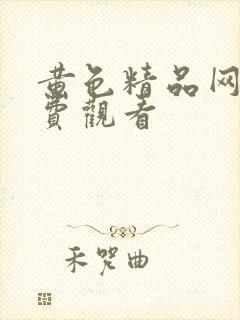 黄色精品网
費觀看
禾哭曲